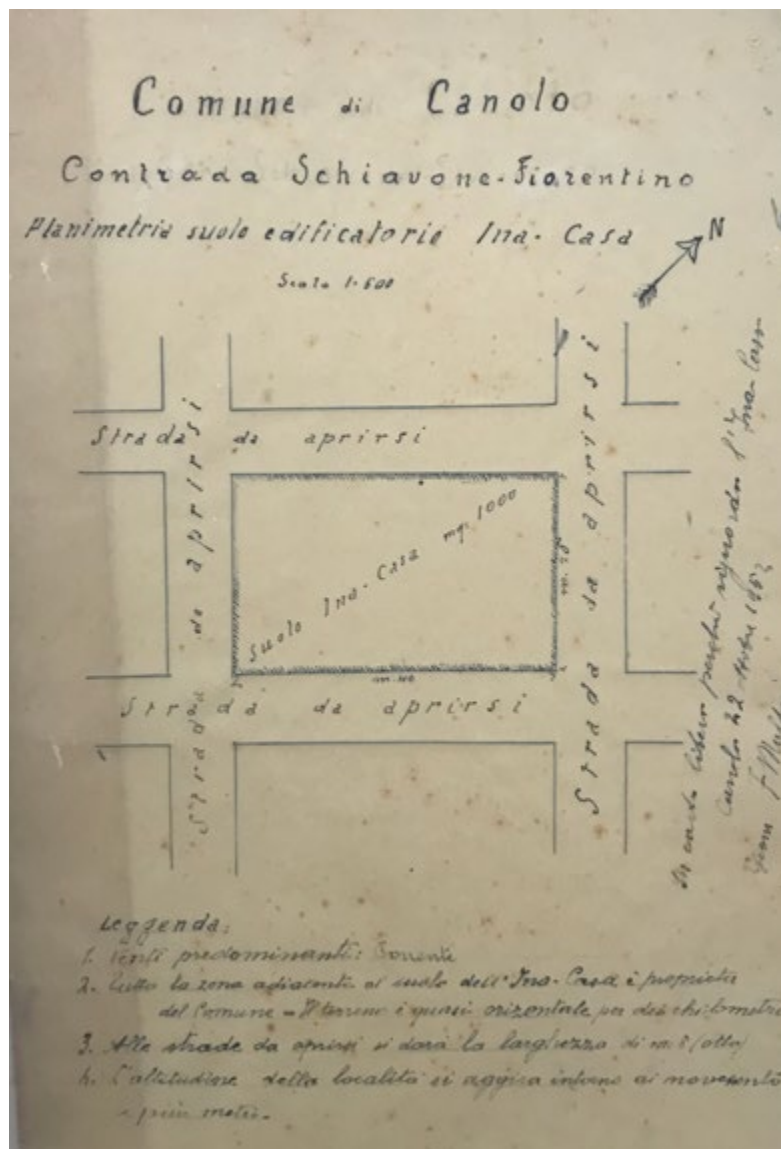 Comune di Canolo
Contrada Schiavone-Fiorentino
Planimetria suolo edificatorio Ina-Casa
N
Scala 1:500
Strada da aprirsi
Strada da aprirsi
Strada da aprirsi
Suolo Ina-Casa mq. 1000
m. 25
m. 40
Strada da aprirsi
In carta libera perchè l'Ina-Casa
Canolo 22
Leggenda:
1. Venti predominanti: Ponente
2. Tutta la zona adiacente al suolo dell'Ina-Casa è proprietà
del Comune - Il terreno è quasi orizontale per chilometri
3. Alle strade da aprirsi si darà la larghezza di m. 8 (otto)
4. L'altitudine della località si aggira intorno ai novecento
e più metri.